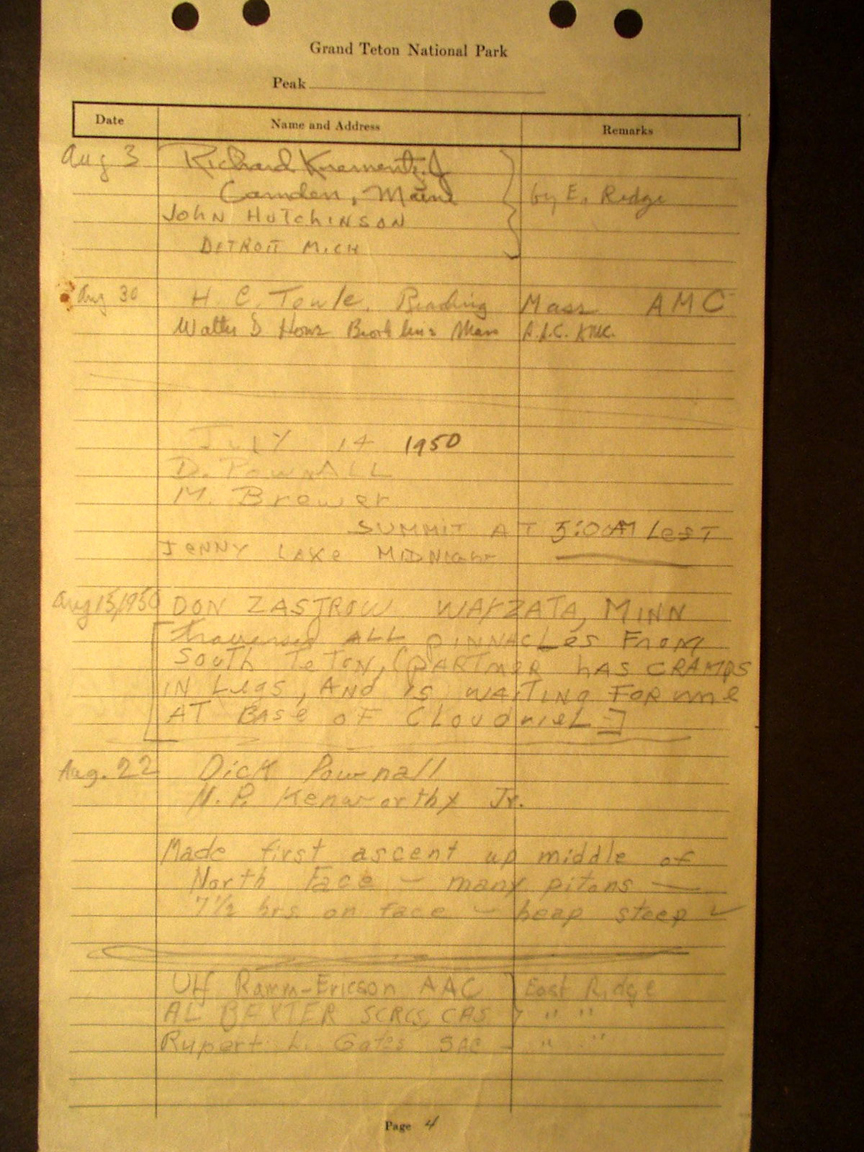 Grand Teton National Park
Peak
Date Name and Address Remarks
Aug 3 Richard Krementz Jr
Camden, Maine by E. Ridge
JOHN HUTCHINSON
DETROIT MICH
Aug 30 H. C. Towle, Reading Mass AMC
Walter D Howe Brookline Mass A.A.C. AMC.
JULY 14 1950
D. PownALL
M. Brewer
SUMMIT AT 5:00AM LeFT
JeNNY LAKe MIDNIGHT
Aug 15, 1950 DON ZASTROW WAYZATA, MINN
[traverse ALL PINNACLeS FROM
SOUTH TeTON, (PARTNER hAS CRAMPS
IN LegS, ANd is WAITING FOR me
AT BAse oF CloudveiL]
Aug. 22 Dick Pownall
N. P. Kenworthy Jr.
Made first ascent up middle of
North Face - many pitons -
7 1/2 hrs. on face - heap steep
Ulf Ramm-Ericson AAC East Ridge
AL BAXTER SCRCS, CAS " "
Rupert L. Gates SAC - " "
Page 4